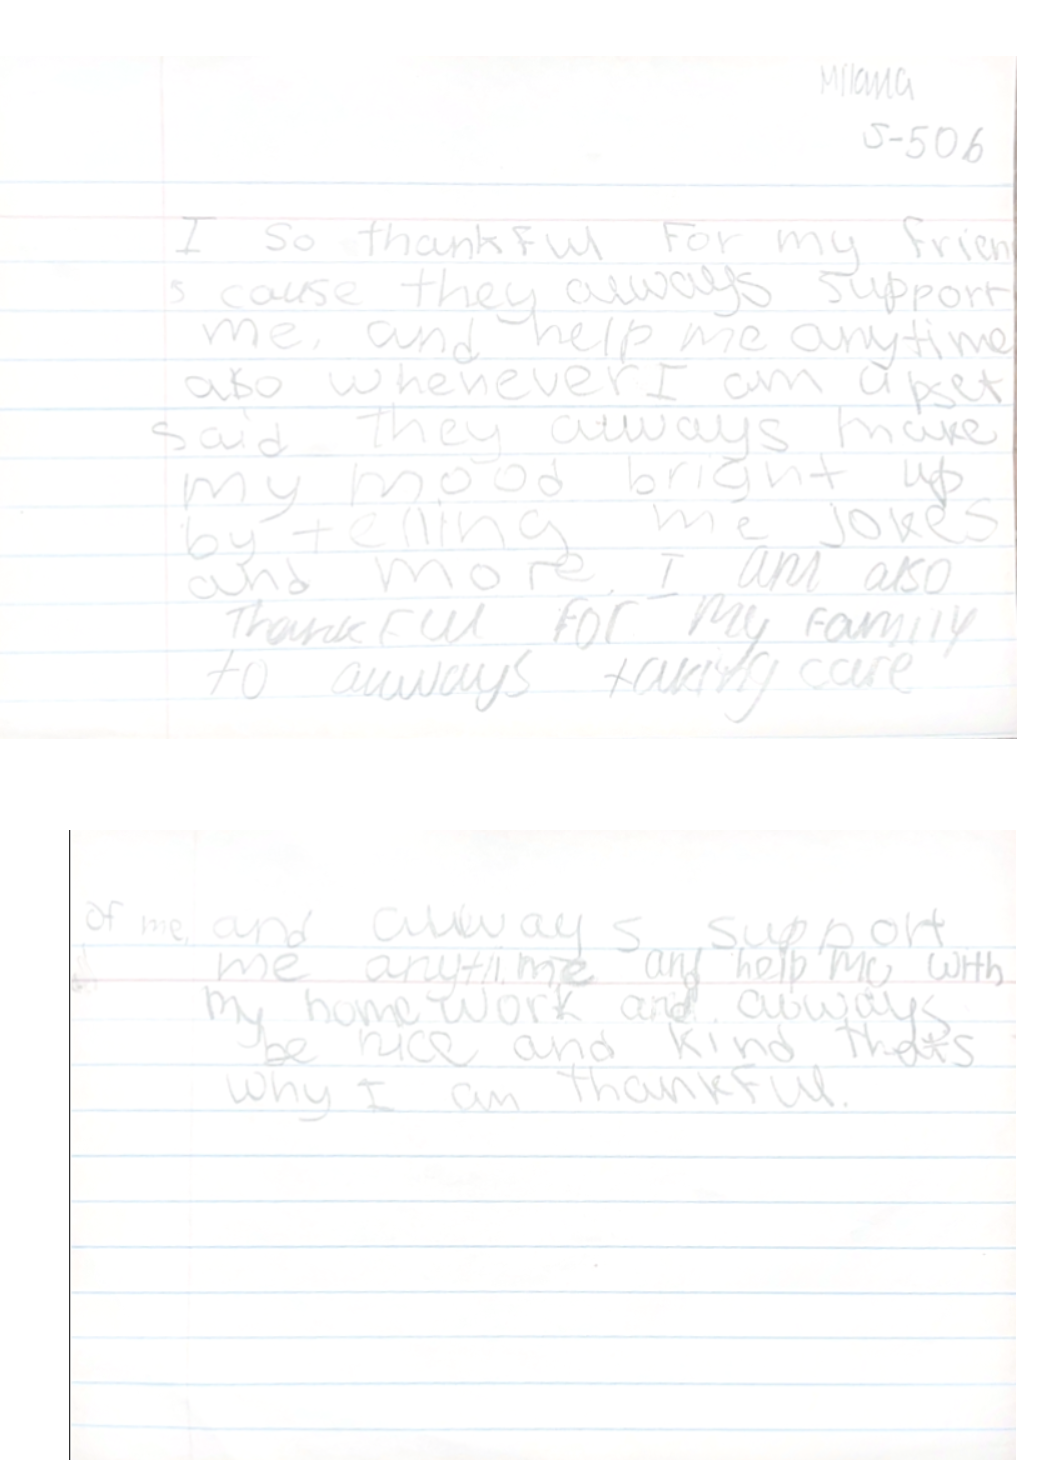 Milana
5-506
I so thankful For my frien
s cause they always support
me, and help me anytime
also whenever I am upset
said they always make
my mood bright up
by telling me jokes
and more. I am also
Thankful For my Family
to always taking care
of me, and always support
me anytime and help me with
my homework and always
be nice and kind thats
why I am thankful.